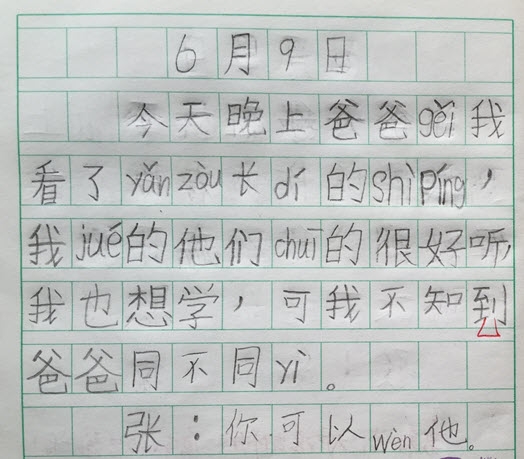 6月9日
今天晚上爸爸gěi我
看了yǎnzòu长dí的shìpíng，
我jué的他们chuī的很好听，
我也想学，可我不知到
爸爸同不同yì。
张：你可以wèn他。